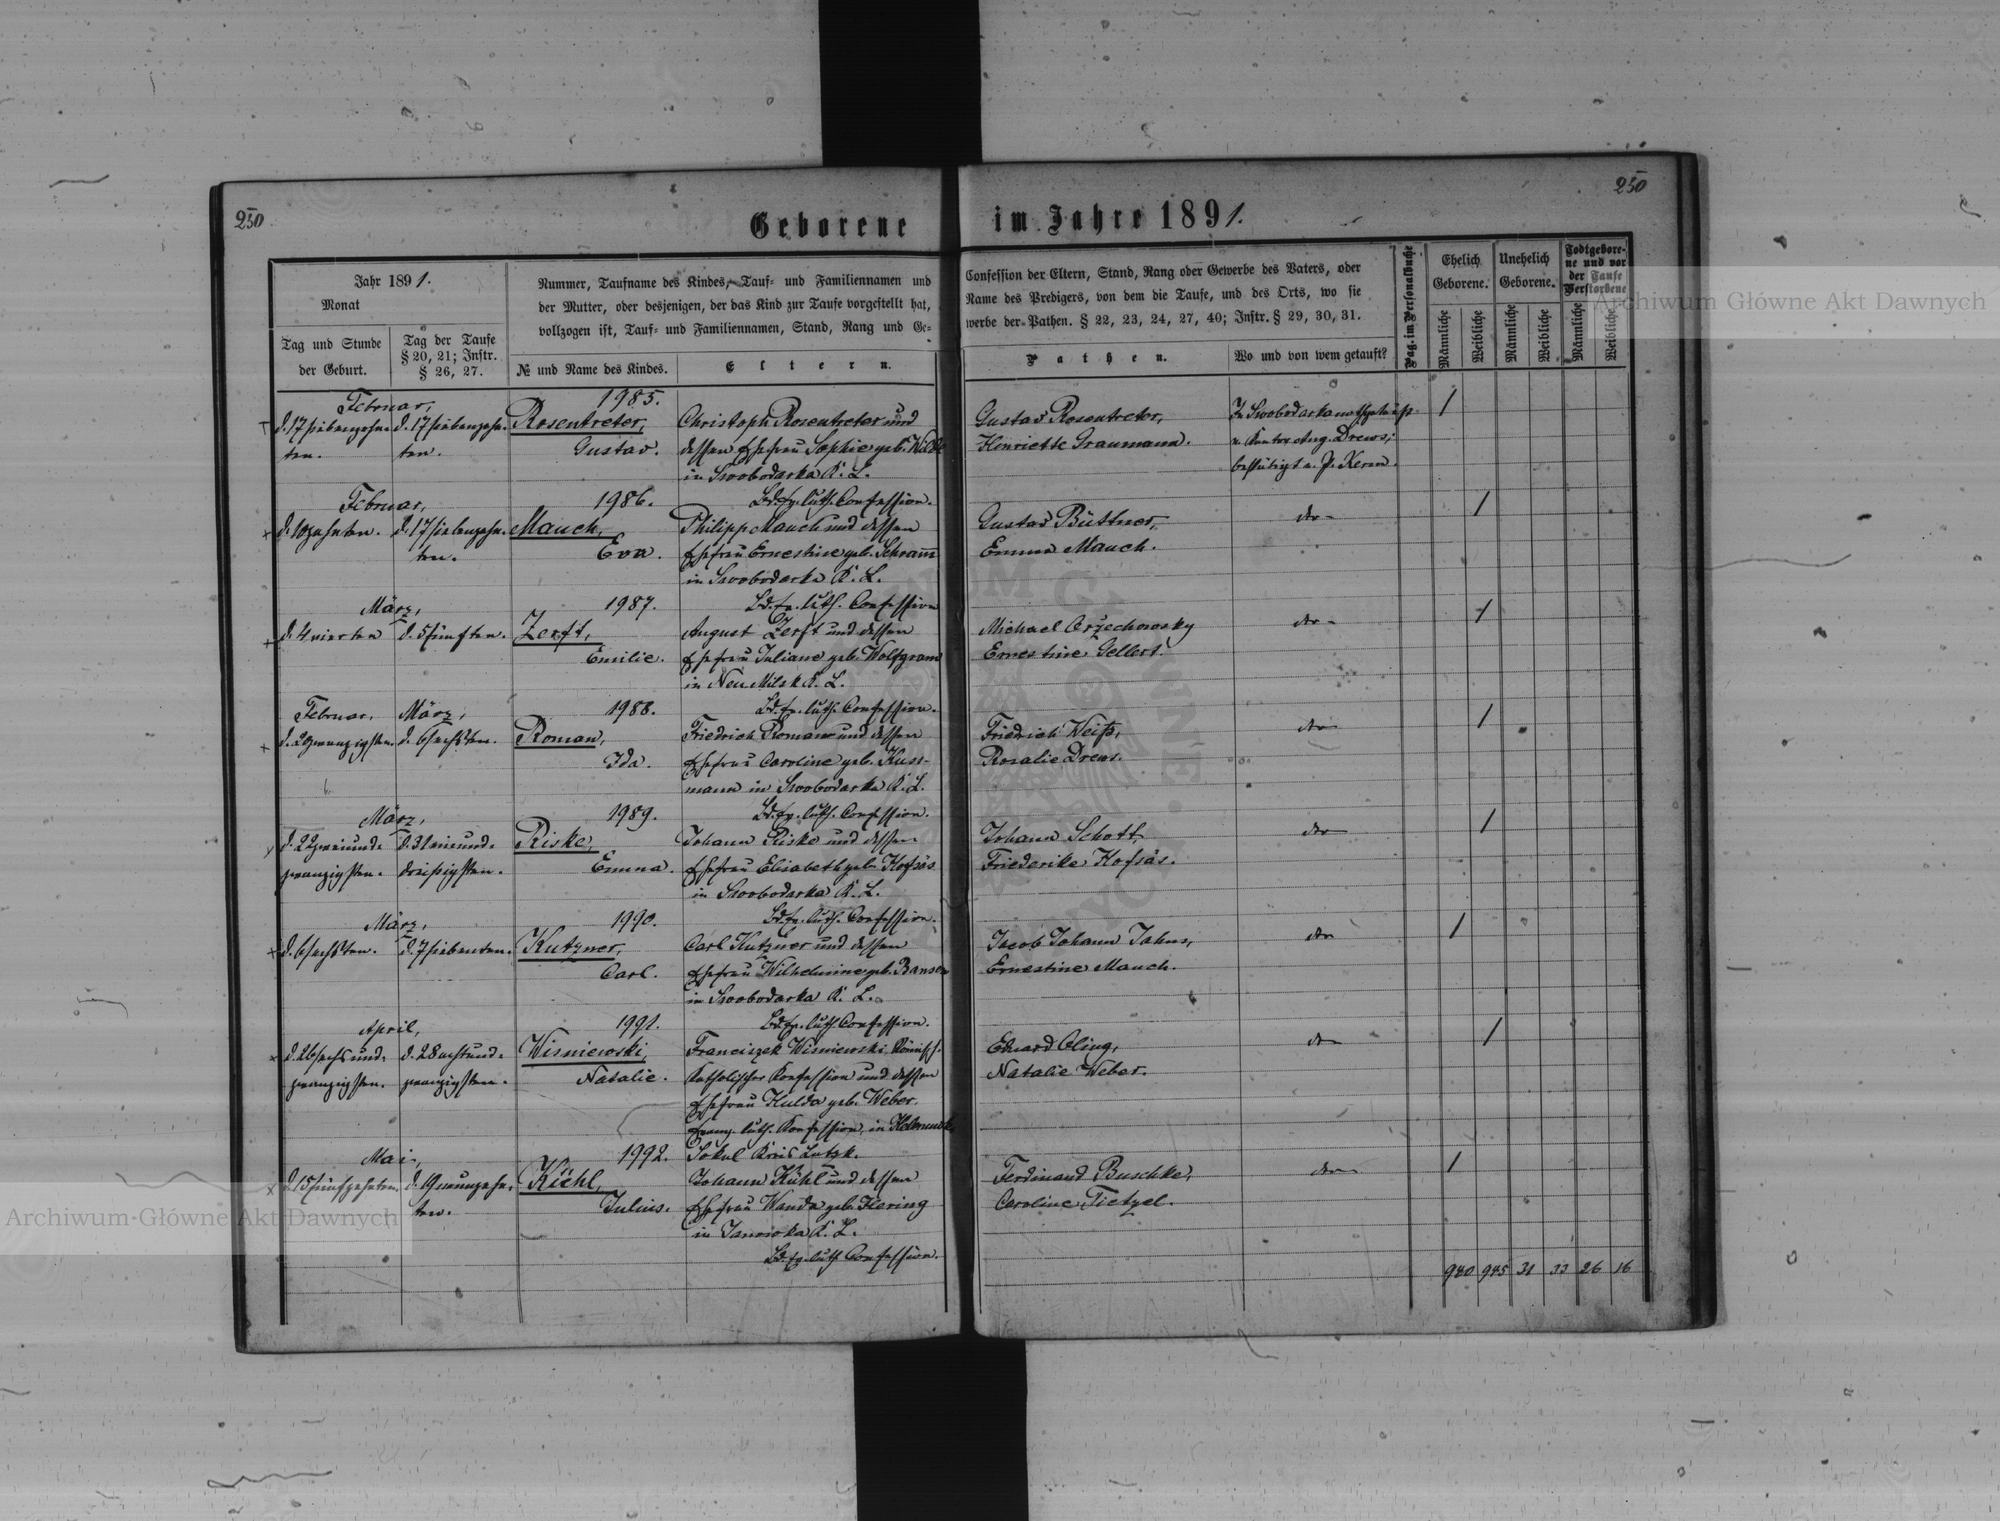 250
250
Geborene im Jahre 1891.
Jahr 1891.
Monat
Tag und Stunde
der Geburt.
Tag der Taufe
§ 20, 21; Instr.
§ 26, 27.
Nummer, Taufname des Kindes, Tauf- und Familiennamen und
der Mutter, oder desjenigen, der das Kind zur Taufe vorgestellt hat,
vollzogen ist, Tauf- und Familiennamen, Stand, Rang und Ge-
№ und Name des Kindes.
Eltern.
Confession der Eltern, Stand, Rang oder Gewerbe des Vaters, oder
Name des Predigers, von dem die Taufe, und des Orts, wo sie
werbe der Pathen. § 22, 23, 24, 27, 40; Instr. § 29, 30, 31.
Pathen.
Wo und von wem getauft?
Pag. im Personalbuche
Ehelich
Geborene.
Unehelich
Geborene.
Todtgebore-
ne und vor
der Taufe
Verstorbene
Männliche
Weibliche
Männliche
Weibliche
Männliche
Weibliche
Februar,
1985.
d. 17 siebenzehn- d. 17 siebenzehn- Rosentreter, Christoph Rosentreter und Gustav Rosentreter, In Swobodarka nothgetauft 1
ten. ten. Gustav. dessen Ehefrau Sophie geb. Wilde Henriette Graumann. v. Kantor Aug. Drews;
in Swobodarka K. L. bestätigt v. P. Kerm.
Februar, 1986. Bd. ev. luth. Confession.
d. 10 zehnten. d. 17 siebenzehn- Mauch, Philipp Mauch und dessen Gustav Büttner, dto 1
ten. Eva. Ehefrau Ernestine geb. Schramm Emma Mauch.
in Swobodarka K. L.
März, 1987. Bd. ev. luth. Confession
d. 4 vierten d. 5 fünften. Zerft, August Zerft und dessen Michael Orzechowsky dto 1
Emilie. Ehefrau Juliane geb. Wolfgram Ernestine Gellert.
in Neu Milsk K. L.
Februar. März, 1988. Bd. ev. luth. Confession.
d. 20 zwanzigsten. d. 6 sechsten. Roman, Friedrich Roman und dessen Friedrich Weiß, dto 1
Ida. Ehefrau Caroline geb. Kuss- Rosalie Drews.
mann in Swobodarka K. L.
März, 1989. Bd. ev. luth. Confession.
d. 22 zweiund- d. 31 einund- Riske, Johann Riske und dessen Johann Schott, dto 1
zwanzigsten. dreißigsten. Emma. Ehefrau Elisabeth geb. Hofsäs Friederike Hofsäs.
in Swobodarka K. L.
März, 1990. Bd. ev. luth. Confession.
d. 6 sechsten. d. 7 siebenten. Kutzner, Carl Kutzner und dessen Jacob Johann Jahns, dto 1
Carl. Ehefrau Wilhelmine geb. Bansen Ernestine Mauch.
in Swobodarka K. L.
April, 1991. Bd. ev. luth. Confession.
d. 26 sechsund- d. 28 achtund- Wisniewski, Franciszek Wisniewski Römisch- Eduard Cling, dto 1
zwanzigsten. zwanzigsten. Natalie. Katholischer Konfession und dessen Natalie Weber.
Ehefrau Hulda geb. Weber.
Evang. luth. Konfession, in
Mai, 1992. Sokul Kreis Lutzk.
d. 15 fünfzehnten. d. 19 neunzehn- Kühl, Johann Kühl und dessen Ferdinand Buschke, dto 1
ten. Julius. Ehefrau Wanda geb. Fiering Caroline Tietzel.
in Janowka K. L.
Bd. ev. luth. Confession.
940 945 31 33 26 16
Archiwum Główne Akt Dawnych
Archiwum Główne Akt Dawnych